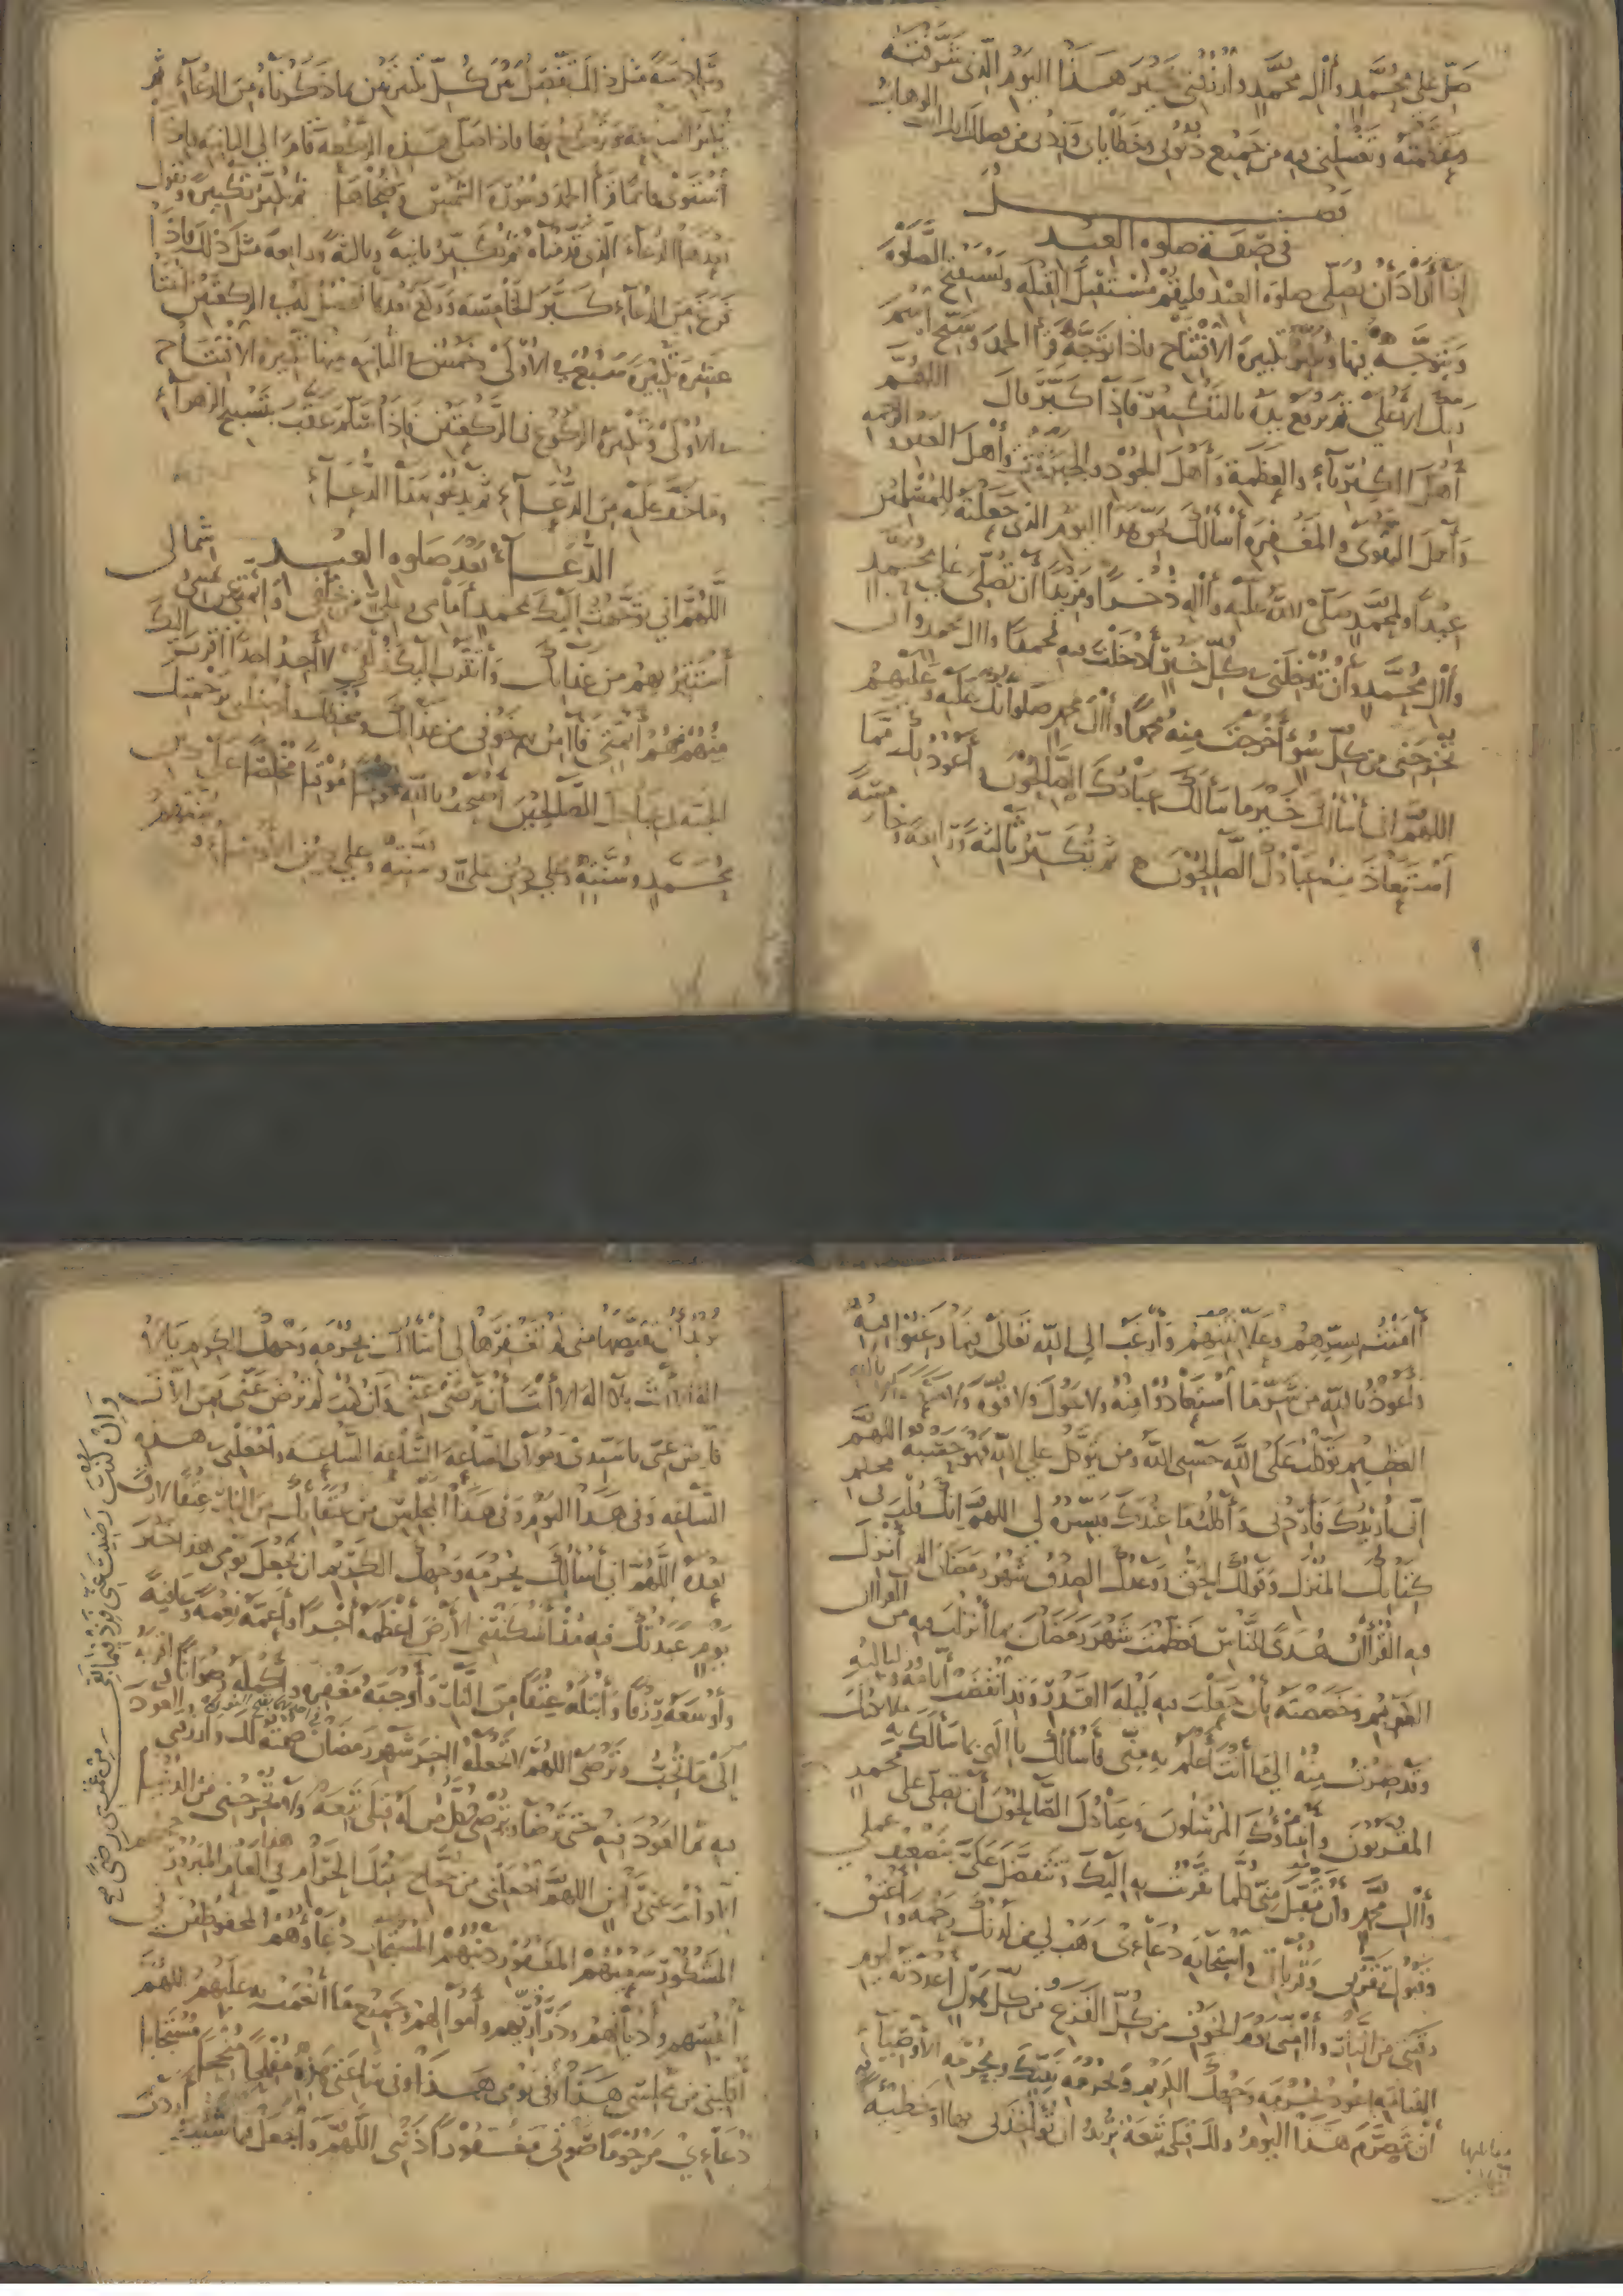 صل على محمد وآل محمد وارزقني خير هذا اليوم الذي شرفته
وعظمته وتغسلني فيه من جميع ذنوبي وخطاياي وزدني من فضلك إنك أنت الوهاب
فصل
في صفة صلوة العيد
إذا أراد أن يصلي صلوة العيد فليقم مستقبل القبلة ويستفتح الصلوة
ويتوجه فيها ويكبر تكبيرة الافتتاح فإذا توجه قرأ الحمد وسبح اسم
ربك الأعلى ثم يرفع يديه بالتكبير فإذا كبر قال اللهم
أهل الكبرياء والعظمة وأهل الجود والجبروت وأهل العفو والرحمة
وأهل التقوى والمغفرة أسألك بحق هذا اليوم الذي جعلته للمسلمين
عيدا ولمحمد صلى الله عليه وآله ذخرا ومزيدا أن تصلي على محمد
وآل محمد وأن تدخلني في كل خير أدخلت فيه محمدا وآل محمد وأن
تخرجني من كل سوء أخرجت منه محمدا وآل محمد صلواتك عليه وعليهم
اللهم إني أسألك خير ما سألك عبادك الصالحون وأعوذ بك مما
استعاذ منه عبادك الصالحون ثم تكبر ثالثة ورابعة وخامسة
وسادسة مثل ذلك تفصل بين كل تكبيرتين بما ذكرناه من الدعاء ثم
يكبر السابعة ويركع بها فإذا صلى هذه الركعة قام إلى الثانية فإذا
استوى قائما قرأ الحمد وسورة الشمس وضحاها ثم يكبر تكبيرة ويقول
بعدها الدعاء الذي قدمناه ثم يكبر ثانية وثالثة ورابعة مثل ذلك فإذا
فرغ من الدعاء كبر الخامسة وركع بعدها فيحصل له في الركعتين اثنتا
عشرة تكبيرة سبع في الأولى وخمس في الثانية منها تكبيرة الافتتاح
في الأولى وتكبيرة الركوع في الركعتين فإذا سلم عقب بتسبيح الزهراء
وما خف عليه من الدعاء ثم يدعو بهذا الدعاء
الدعاء بعد صلوة العيد
اللهم إني توجهت إليك بمحمد أمامي وعلي من خلفي وأئمتي عن يميني شمالي
أستتر بهم من عذابك وأتقرب إليك زلفى لا أجد أحدا أقرب إليك
منهم فهم أئمتي فآمن بهم خوفي من عذابك وسخطك وأدخلني برحمتك
الجنة في عبادك الصالحين أصبحت بالله مؤمنا موقنا مخلصا على دين
محمد وسنته وعلى دين علي وسنته وعلى دين الأوصياء وسنتهم
آمنت بسرهم وعلانيتهم وأرغب إلى الله تعالى فيما رغبوا فيه
وأعوذ بالله من شر ما استعاذوا منه ولا حول ولا قوة ولا منعة إلا بالله
العظيم توكلت على الله حسبي الله ومن يتوكل على الله فهو حسبه اللهم
إني أريدك فأردني وأطلب ما عندك فيسره لي اللهم إنك قلت في محكم
كتابك المنزل وقولك الحق ووعدك الصدق شهر رمضان الذي أنزل
فيه القرآن هدى للناس فعظمت شهر رمضان بما أنزلت فيه من القرآن
الكريم وخصصته بأن جعلت فيه ليلة القدر وقد انقضت أيامه ولياليه
وقد صرت منه إلى ما أنت أعلم به مني فأسألك يا إلهي بما سألك به ملائكتك
المقربون وأنبياؤك المرسلون وعبادك الصالحون أن تصلي على محمد
وآل محمد وأن تقبل مني كلما تقربت به إليك وتتفضل علي بتضعيف عملي
وقبول تقربي وقرباني واستجابة دعائي وهب لي من لدنك رحمة وأعتق
رقبتي من النار وآمني يوم الخوف من كل الفزع ومن كل هول أعددته ليوم
القيامة أعوذ بحرمة وجهك الكريم وبحرمة نبيك وبحرمة الأوصياء
أن يتصرم هذا اليوم ولك قبلي تبعة تريد أن تؤاخذني بها أو خطيئة
تريد أن تقتصها مني لم تغفرها لي أسألك بحرمة وجهك الكريم يا لا
إله إلا أنت بلا إله إلا أنت أن ترضى عني وإن كنت لم ترض عني فمن الآن
فارض عني يا سيدي ومولاي الساعة الساعة الساعة واجعلني في هذه
الساعة وفي هذا اليوم وفي هذا المجلس من عتقائك من النار عتقا لا رق
بعده اللهم إني أسألك بحرمة وجهك الكريم أن تجعل يومي هذا خير
يوم عبدتك فيه منذ أسكنتني الأرض أعظمه أجرا وأعمه نعمة وعافية
وأوسعه رزقا وأبتله عتقا من النار وأوجبه مغفرة وأكمله رضوانا وأقربه
إلى ما تحب وترضى اللهم لا تجعله آخر شهر رمضان صمته لك وارزقني العود
فيه ثم العود فيه حتى ترضى وترضي كل من له قبلي تبعة ولا تخرجني من الدنيا
إلا وأنت عني راض اللهم اجعلني من حجاج بيتك الحرام في هذا العام المبرور حجهم
المشكور سعيهم المغفور ذنبهم المستجاب دعاؤهم المحفوظين في
أنفسهم وأديانهم وذراريهم وأموالهم وجميع ما أنعمت به عليهم اللهم
اقلبني من مجلسي هذا وفي يومي هذا وفي ساعتي هذه مفلحا منجحا مستجابا
دعائي مرحوما صوتي مغفورا ذنبي اللهم واجعل فيما شئت وأردت
وإن كنت رضيت عني فزد فيما بقي من عمري رضى